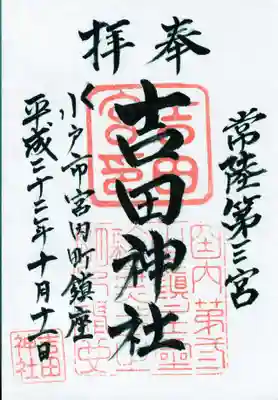 奉拝
常陸第三宮
吉田神社
水戸市宮内町鎮座
平成二十二年十月十一日
吉田神社